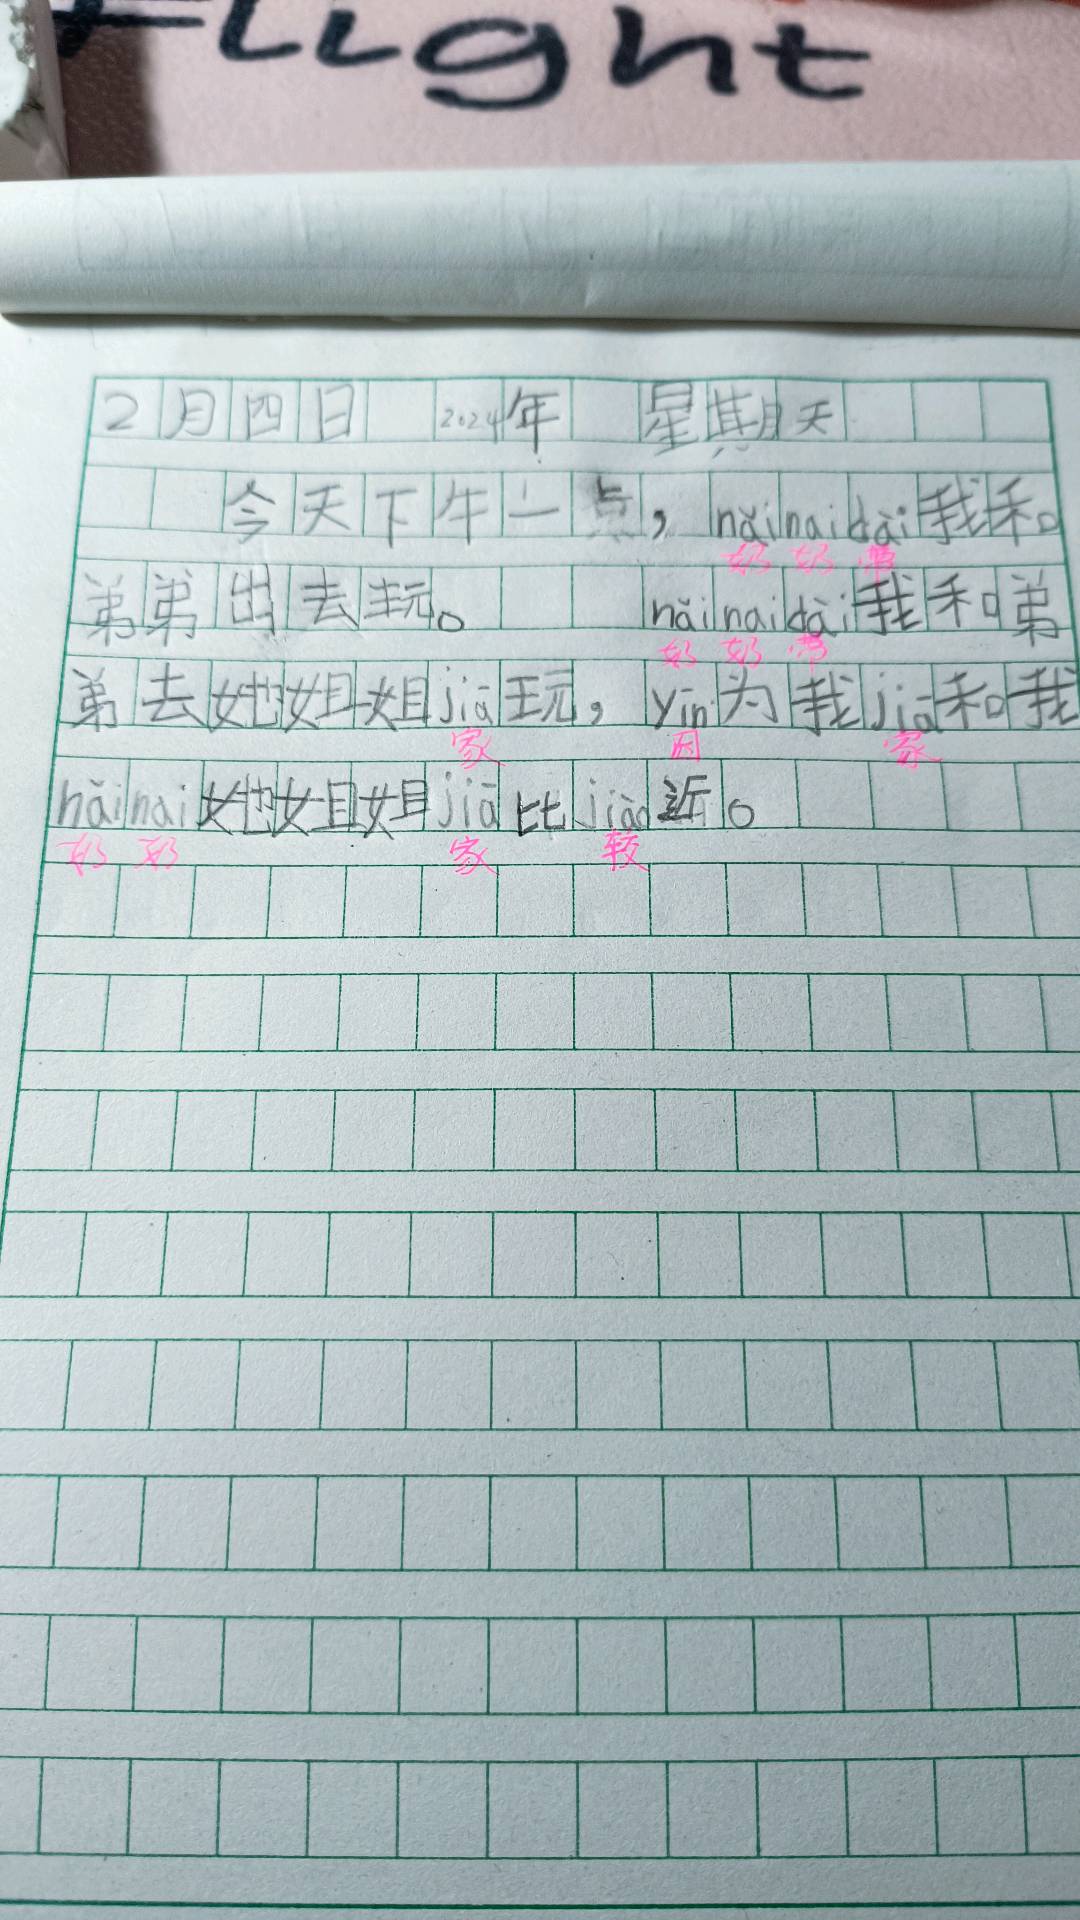 Flight
2月四日 2024年 星期天
今天下午一点，nǎinaidài我和
奶奶带
弟弟出去玩。 nǎinaidài我和弟
奶奶带
弟去她姐姐jiā玩，yīn为我jiā和我
家 因 家
nǎinai她姐姐jiā比jiào近。
奶奶 家 较